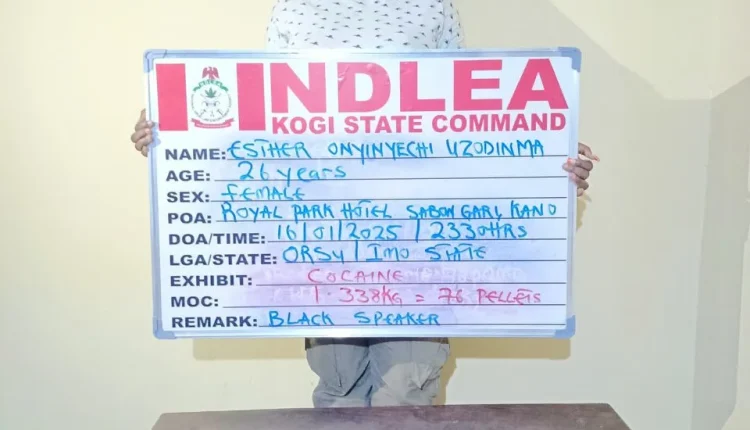 NDLEA
KOGI STATE COMMAND
NAME: ESTHER ONYINYECHI UZODINMA
AGE: 26 years
SEX: FEMALE
POA: ROYAL PARK HOTEL SABON GARI, KANO
DOA/TIME: 16/01/2025 / 2330HRS
LGA/STATE: ORSU / IMO STATE
EXHIBIT: COCAINE
MOC: 1.338KG = 76 PELLETS
REMARK: BLACK SPEAKER